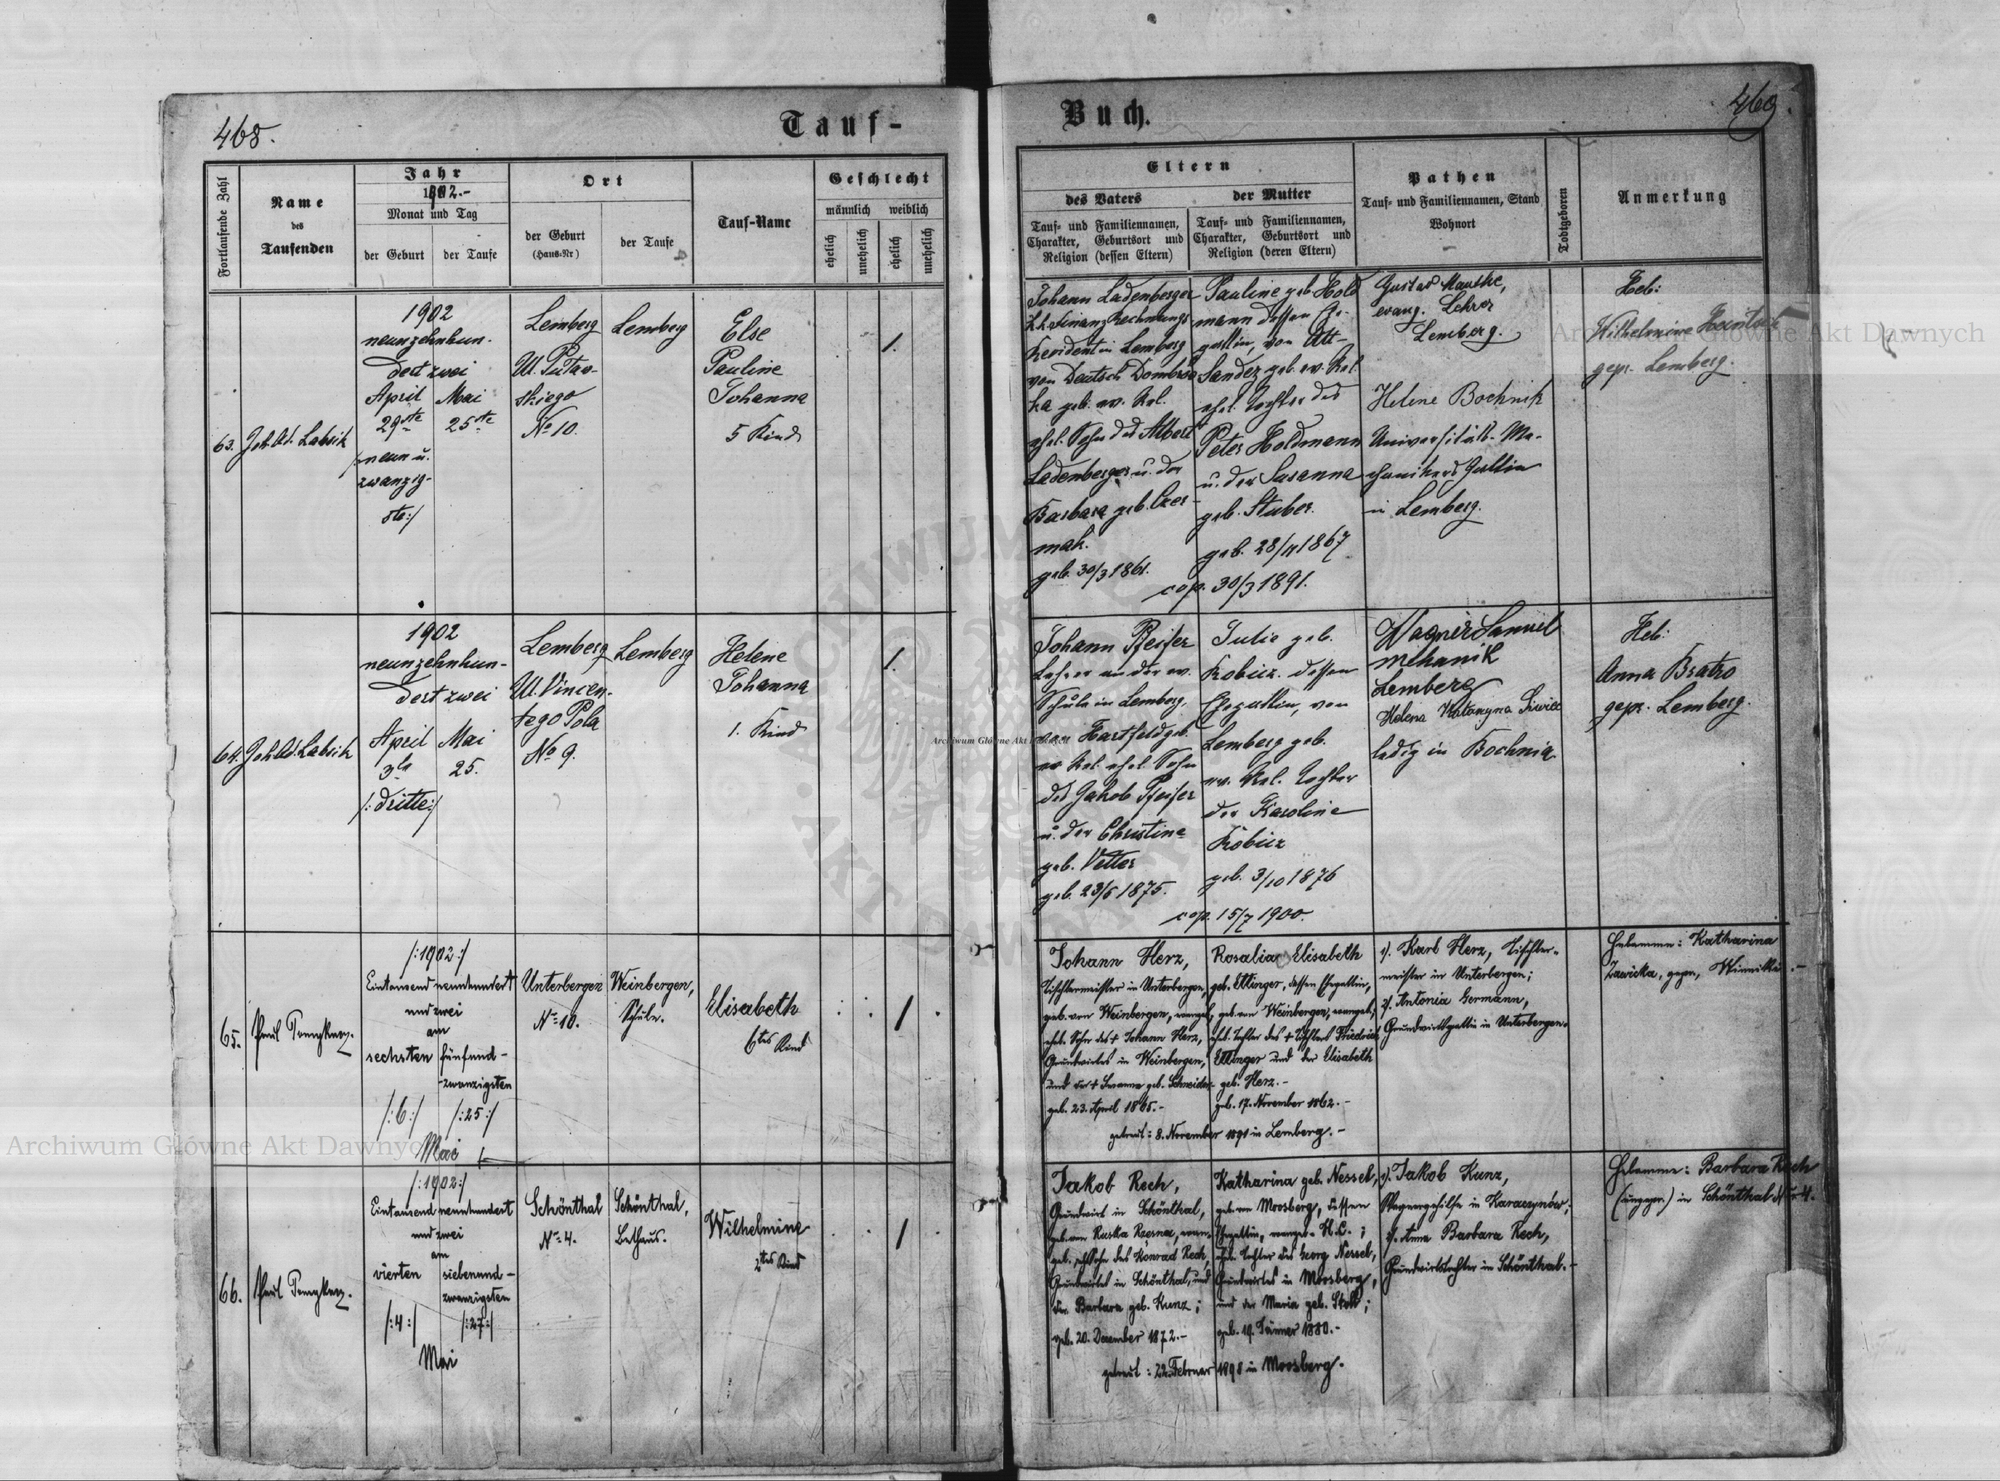 468.
Tauf-
Fortlaufende Zahl
Name
des
Taufenden
Jahr
1902.-
Monat und Tag
der Geburt
der Taufe
Ort
der Geburt
(Haus-Nr)
der Taufe
Tauf-Name
Geschlecht
männlich
weiblich
ehelich
unehelich
ehelich
unehelich
63.
Joh. Ad. Labsik
1902
neunzehnhun-
dert zwei
April
29ste
/:neun u.
zwanzig-
ste:/
Mai
25ste
Lemberg
Ul.
skiego
No 10.
Lemberg
Else
Pauline
Johanna
5 Kind
1.
64.
Joh. Ad. Labsik
1902
neunzehnhun-
dert zwei
April
3te
/:dritte:/
Mai
25.
Lemberg
Ul. Vincen-
tego Pola
No 9.
Lemberg
Helene
Johanna
1. Kind
1.
65.
Paul
/:1902:/
Eintausend neunhundert
und zwei
am
sechsten
/:6:/
fünfund-
zwanzigsten
/:25:/
Mai
Unterbergen
No 10.
Weinbergen,
Schule.
Elisabeth
6tes Kind
1
66.
Paul
/:1902:/
Eintausend neunhundert
und zwei
am
vierten
/:4:/
siebenund-
zwanzigsten
/:27:/
Mai
Schönthal
No 4.
Schönthal,
Bethaus.
Wilhelmine
2tes Kind
1
Buch.
469.
Eltern
des Vaters
Tauf- und Familiennamen,
Charakter, Geburtsort und
Religion (dessen Eltern)
der Mutter
Tauf- und Familiennamen,
Charakter, Geburtsort und
Religion (deren Eltern)
Pathen
Tauf- und Familiennamen, Stand
Wohnort
Todtgeboren
Anmerkung
Johann Ladenberger
k.k. Finanz Rechnungs
Revident in Lemberg
von Deutsch Dombrow
ka geb. ev. Rel.
ehel. Sohn des Albert
Ladenberger u. der
Barbara geb. Czer-
mak.
geb. 30/3 1861.
Pauline geb. Hold
mann dessen Ge-
gattin, von Alt-
Sandez geb. ev. Rel
ehel. Tochter des
Peter Holdmann
u. der Susanna
geb. Stuber.
geb. 28/ 1867
cop. 30/3 1891.
Gustav
evang. Lehrer
Lemberg.
Helene Bochnik
Universität-Me-
chanikers Gattin
in Lemberg.
Heb:
Wilhelmine
gepr. Lemberg.
Johann Pfeifer
Lehrer an der ev.
Schule in Lemberg,
von Hartfeld geb.
ev. Rel. ehel. Sohn
des Jakob Pfeifer
u. der Christine
geb. Vetter
geb. 23/5 1875.
Julie geb.
Kobicz. dessen
Ehegattin, von
Lemberg geb.
ev. Rel. Tochter
der Karoline
Kobicz
geb. 3/10 1876
cop. 15/7 1900.
Wagner Samuel
mehanik
Lemberg
Helena
ledig in Bochnia
Heb:
Anna Bratro
gepr. Lemberg.
Johann Herz,
Tischlermeister in Unterbergen,
geb. von Weinbergen, evangel.,
ehel. Sohn des + Johann Herz,
Grundwirtes in Weinbergen,
und der + Susanna geb. Schneider.-
geb. 23. April 1865.-
Rosalia Elisabeth
geb. Ettinger, dessen Ehegattin,
geb. von Weinbergen, evangel.,
ehel. Tochter des + Tischlers Friedrich
Ettinger und der Elisabeth
geb. Herz.-
geb. 17. November 1862.-
getraut: 8. November 1891 in Lemberg.-
1). Karl Herz, Tischler-
meister in Unterbergen;
2). Antonia Germann,
Grundwirtsgattin in Unterbergen.
Hebamme: Katharina
Zawicka, gepr., Winniki.-
Jakob Rech,
Grundwirt in Schönthal,
geb. von evan-
gel., ehl. Sohn des Konrad Rech,
Grundwirtes in Schönthal, und
der Barbara geb. Kunz;
geb. 20. Dezember 1872.-
Katharina geb. Nessel,
geb. von Moosberg, dessen
Ehegattin, evangel. H.C.;
ehel. Tochter des Georg Nessel,
Grundwirtes in Moosberg,
und der Maria geb. Stolb;
geb. 19. Jänner 1880.-
getraut: 22. Februar 1898 in Moosberg.
1). Jakob Kunz,
Wagnergehilfe in Karaczynów;
2). Anna Barbara Rech,
Grundwirtstochter in Schönthal.-
Hebamme: Barbara Rech
(ungepr.) in Schönthal Nr 4.
Archiwum Główne Akt Dawnych
Archiwum Główne Akt Dawnych
Archiwum Główne Akt Dawnych